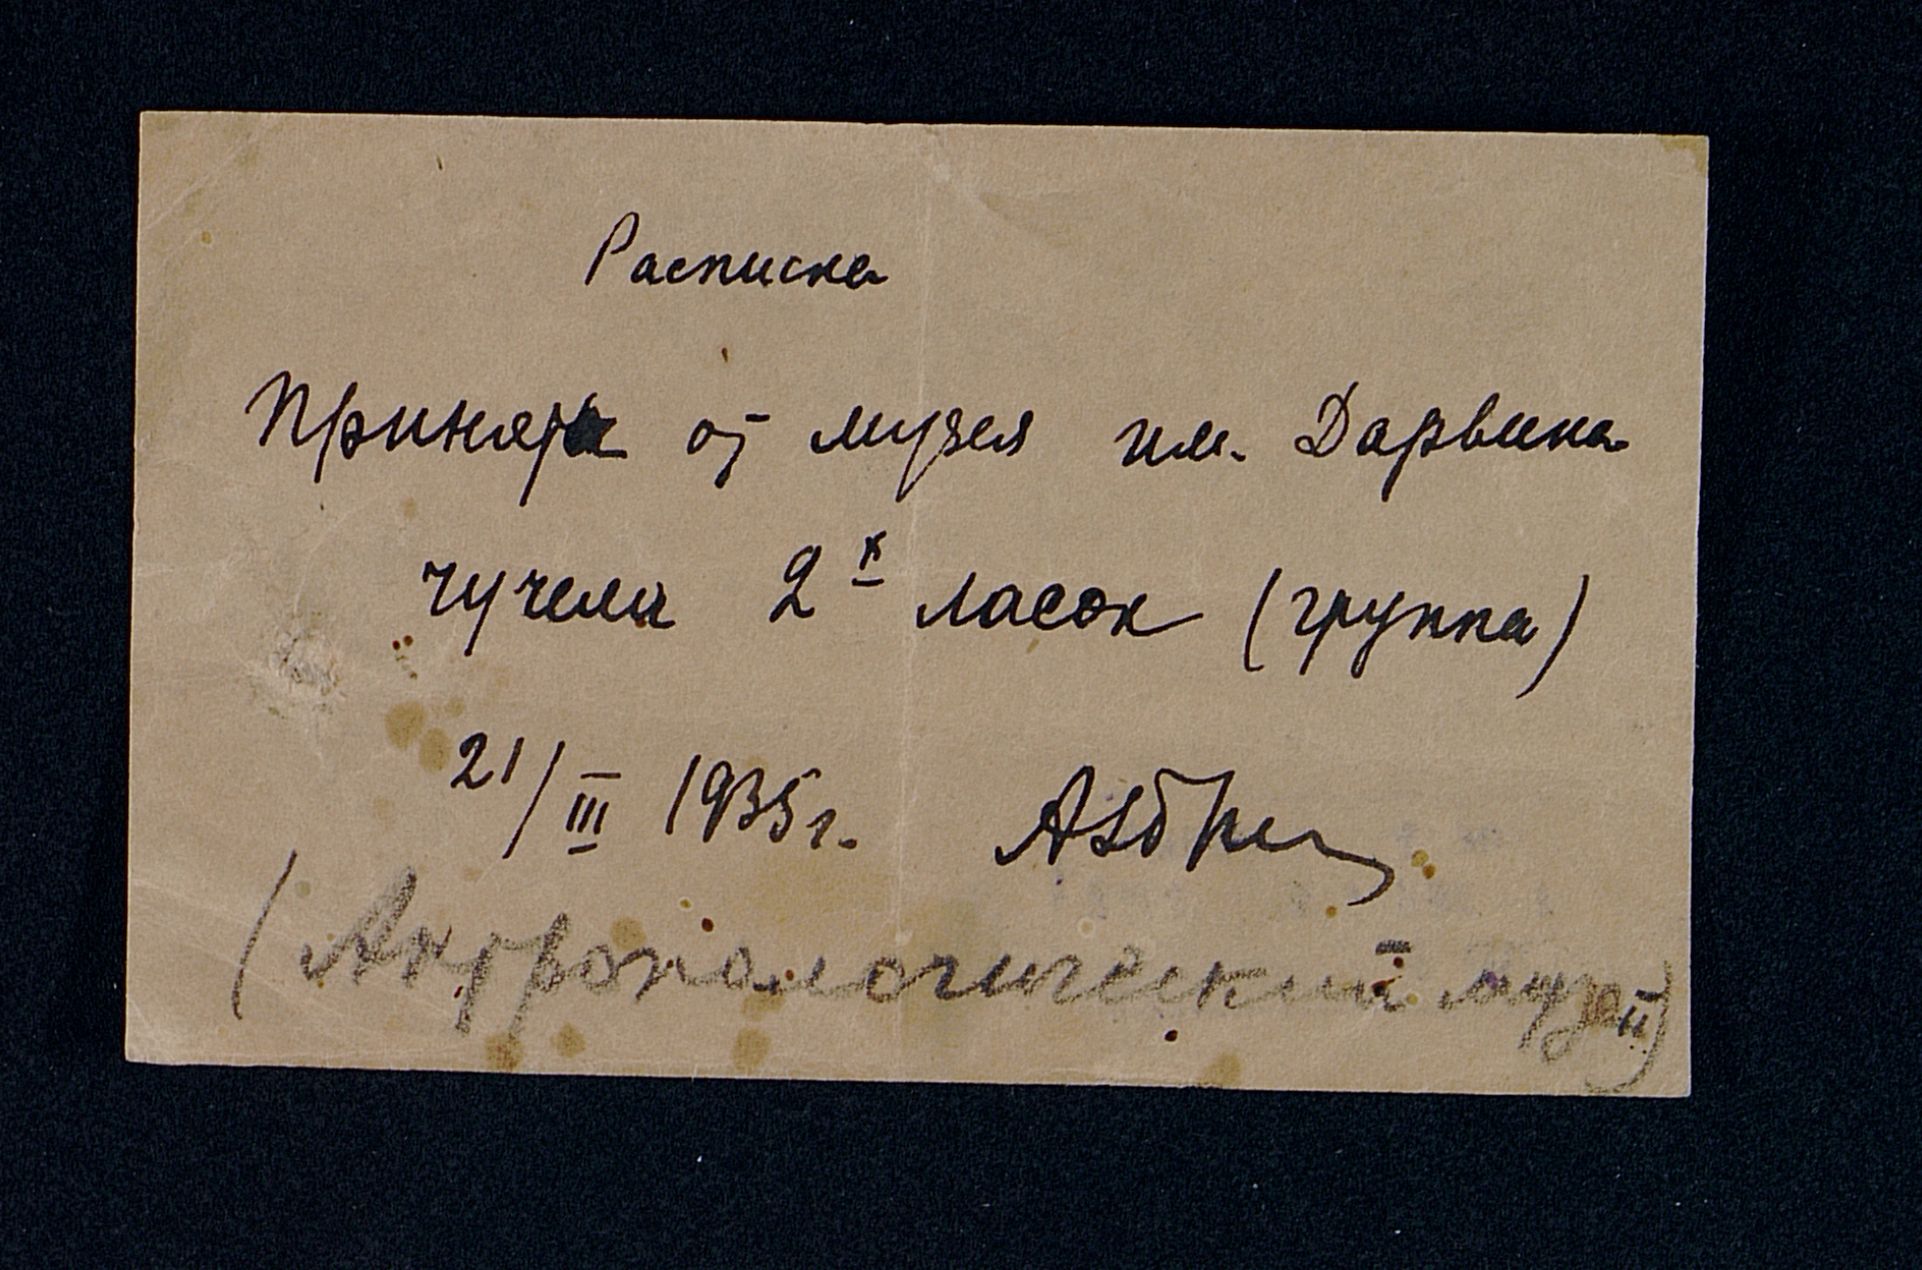 Расписка
Приняты от музея им. Дарвина
чучела 2х ласок (группа)
21/III 1935 г.
(Антропологический музей)